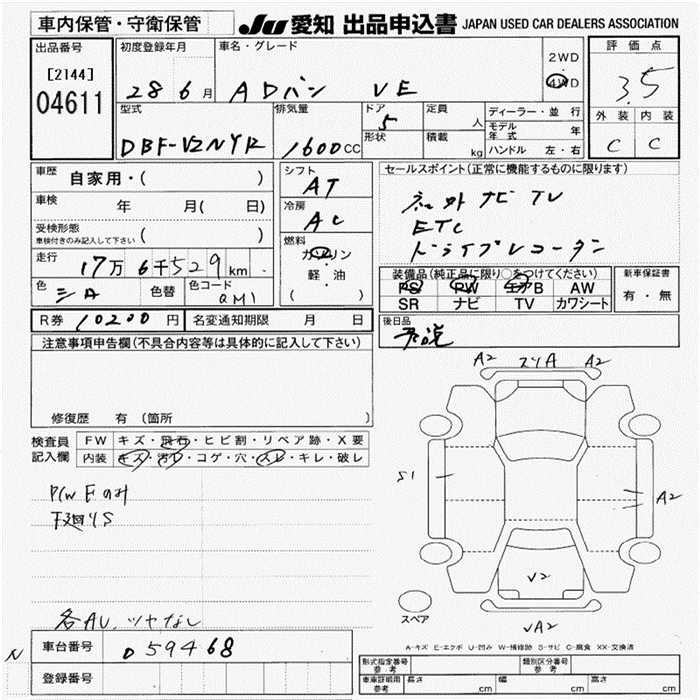 車内保管・守衛保管
JU 愛知 出品申込書 JAPAN USED CAR DEALERS ASSOCIATION
出品番号
[2144]
04611
初度登録年月
28 6月
車名・グレード
ADバン VE
2WD
4WD
評価点
3.5
外装 内装
C C
型式
DBF-VZNY12
排気量
1600CC
ドア
5
形状
定員
人
積載
kg
ディーラー・並行
モデル年式 年
ハンドル 左・右
車歴 自家用・( )
車検 年 月( 日)
受検形態
車検付きのみ記入して下さい ( )
走行 17万 6千529km
色 シA 色替 色コード QM1
シフト
AT
冷房
AC
燃料
ガソリン
・
軽・油
( )
セールスポイント(正常に機能するものに限ります)
社外ナビ TV
ETC
ドライブレコーダー
装備品(純正品に限り○をつけてください)
PS PW エアB AW
SR ナビ TV カワシート
新車保証書
有・無
R券 10200円 名変通知期限 月 日
後日品
注意事項申告欄(不具合内容等は具体的に記入して下さい)
修復歴 有(箇所
検査員
記入欄
FW キズ・飛石・ヒビ割・リペア跡・X要
内装 キズ・汚レ・コゲ・穴・スレ・キレ・破レ
P/W Fのみ
下廻りS
各AU、ツヤなし
A2 スリA A2
S1
A2
V2
VA2
スペア
A-キズ E-エクボ U-凹み W-補修跡 S-サビ C-腐食 XX-交換済
N
車台番号 059468
登録番号
形式指定番号
参考
類別区分番号
参考
車庫証明用
参考
長さ cm 幅 cm 高さ cm